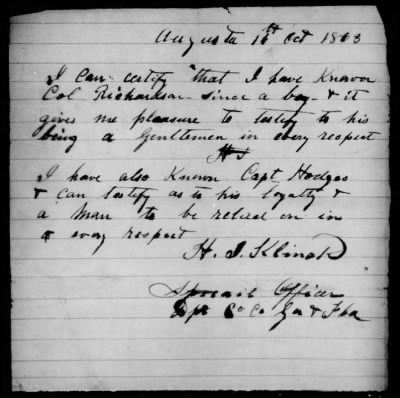 Augusta 16th Oct 1863
I can certify that I have Known
Col Richardson since a boy & it
gives me pleasure to testify to his
being a Gentlemen in every respect
H J
I have also Known Capt Hodges
& can testify as to his loyalty &
a Man to be relied on in
every respect
H. J.
Officer
Dept Ga & Fla